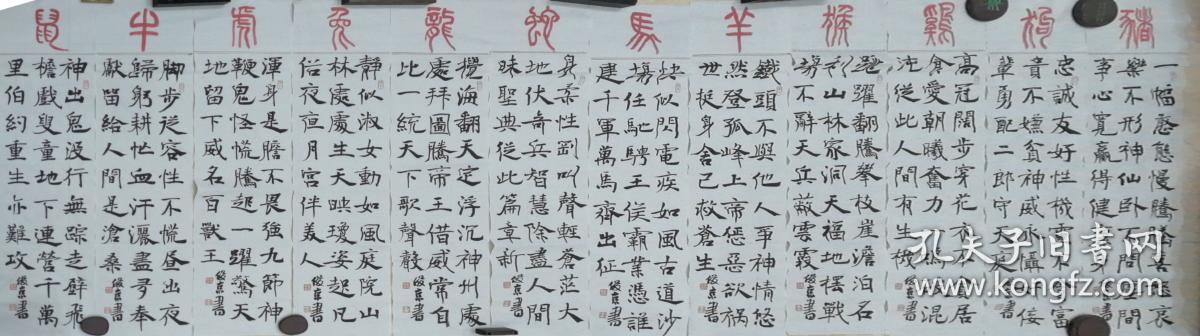 鼠
神出鬼没行無踪走壁飛
檐戲叟童地下連营千萬
里伯約重生亦難攻
牛
脚步従容性不慌昼出夜
歸躬耕忙血汗灑盡寻奉
獻留給人間是滄桑
書
虎
渾身是膽不畏強九節神
鞭鬼怪慌騰起一躍驚天
地留下威名百獸王
書
兔
静似淑女動如風庭院山
林處處生天映瓊姿起凡
俗夜亘月宫伴美人
書
龍
攪海翻天定浮沉神州處
處拜圖騰帝王借威常自
比一統天下歌聲
書
蛇
身柔性剛叫聲輕蒼茫大
地伏奇兵智慧除盡人間
昧聖典従此篇章新
書
馬
快似閃電疾如風古道沙
場任馳騁王侯霸業憑誰
建千軍萬馬齊出征
羊
鐵頭不與他人爭神情悠
然登孤峰上帝惩惡欲祸
世挺身舍己救蒼生
書
猴
躍翻騰攀枝崖澹泊名
利山林家洞天福地擺戰
場不辭天兵蔽雲霞
書
鷄
高冠闊步穿花衣居
食愛朝曦奮力混
沌従此人間有生機
狗
忠誠友好性機靈不富
貴不嫌貧神威亦懾倭
輩勇配二郎守天庭
豬
一幅憨態慢騰騰喜怒哀
樂不形神仙卧不問世間
事心寬赢得健
書
孔夫子旧书网
KONGFZ.COM